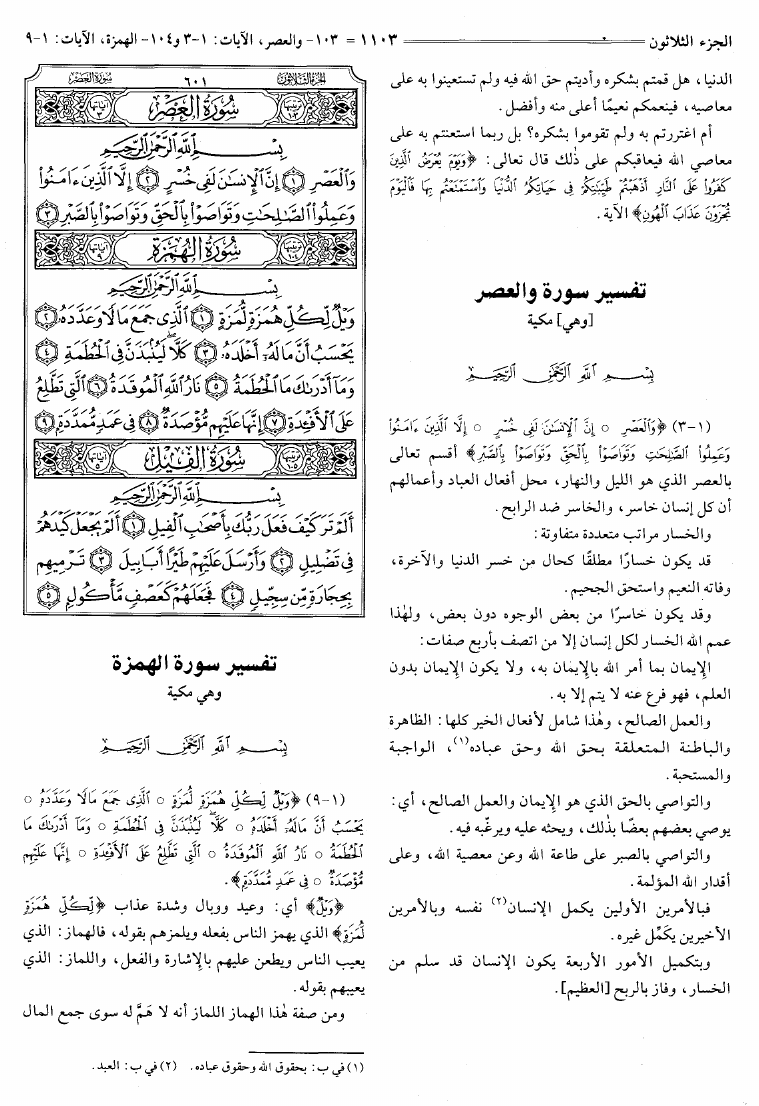 الجزء الثلاثون
١١٠٣ = ١٠٣- والعصر، الآيات: ١-٣ و١٠٤- الهمزة، الآيات: ١-٩
الدنيا، هل قمتم بشكره وأديتم حق الله فيه ولم تستعينوا به على
معاصيه، فينعمكم نعيمًا أعلى منه وأفضل.
أم اغتررتم به ولم تقوموا بشكره؟ بل ربما استعنتم به على
معاصي الله فيعاقبكم على ذٰلك قال تعالى: ﴿وَيَوْمَ يُعْرَضُ ٱلَّذِينَ
كَفَرُوا۟ عَلَى ٱلنَّارِ أَذْهَبْتُمْ طَيِّبَـٰتِكُمْ فِى حَيَاتِكُمُ ٱلدُّنْيَا وَٱسْتَمْتَعْتُم بِهَا فَٱلْيَوْمَ
تُجْزَوْنَ عَذَابَ ٱلْهُونِ﴾ الآية.
تفسير سورة والعصر
[وهي] مكية
بِسْمِ ٱللَّهِ ٱلرَّحْمَـٰنِ ٱلرَّحِيمِ
(١-٣) ﴿وَٱلْعَصْرِ ○ إِنَّ ٱلْإِنسَـٰنَ لَفِى خُسْرٍ ○ إِلَّا ٱلَّذِينَ ءَامَنُوا۟
وَعَمِلُوا۟ ٱلصَّـٰلِحَـٰتِ وَتَوَاصَوْا۟ بِٱلْحَقِّ وَتَوَاصَوْا۟ بِٱلصَّبْرِ﴾ أقسم تعالى
بالعصر الذي هو الليل والنهار، محل أفعال العباد وأعمالهم
أن كل إنسان خاسر، والخاسر ضد الرابح.
والخسار مراتب متعددة متفاوتة:
قد يكون خسارًا مطلقًا كحال من خسر الدنيا والآخرة،
وفاته النعيم واستحق الجحيم.
وقد يكون خاسرًا من بعض الوجوه دون بعض، ولهٰذا
عمم الله الخسار لكل إنسان إلا من اتصف بأربع صفات:
الإيمان بما أمر الله بالإيمان به، ولا يكون الإيمان بدون
العلم، فهو فرع عنه لا يتم إلا به.
والعمل الصالح، وهٰذا شامل لأفعال الخير كلها: الظاهرة
والباطنة المتعلقة بحق الله وحق عباده(١)، الواجبة
والمستحبة.
والتواصي بالحق الذي هو الإيمان والعمل الصالح، أي:
يوصي بعضهم بعضًا بذٰلك، ويحثه عليه ويرغّبه فيه.
والتواصي بالصبر على طاعة الله وعن معصية الله، وعلى
أقدار الله المؤلمة.
فبالأمرين الأولين يكمل الإنسان(٢) نفسه وبالأمرين
الأخيرين يكمّل غيره.
وبتكميل الأمور الأربعة يكون الإنسان قد سلم من
الخسار، وفاز بالربح [العظيم].
الجزء الثلاثون
٦٠١
سورة العصر
ترتيبها ١٠٣
سُورَةُ العَصْرِ
آياتها ٣
بِسْمِ ٱللَّهِ ٱلرَّحْمَـٰنِ ٱلرَّحِيمِ
وَٱلْعَصْرِ ١ إِنَّ ٱلْإِنسَـٰنَ لَفِى خُسْرٍ ٢ إِلَّا ٱلَّذِينَ ءَامَنُوا۟
وَعَمِلُوا۟ ٱلصَّـٰلِحَـٰتِ وَتَوَاصَوْا۟ بِٱلْحَقِّ وَتَوَاصَوْا۟ بِٱلصَّبْرِ ٣
ترتيبها ١٠٤
سُورَةُ الهُمَزَةِ
آياتها ٩
بِسْمِ ٱللَّهِ ٱلرَّحْمَـٰنِ ٱلرَّحِيمِ
وَيْلٌ لِّكُلِّ هُمَزَةٍ لُّمَزَةٍ ١ ٱلَّذِى جَمَعَ مَالًا وَعَدَّدَهُۥ ٢
يَحْسَبُ أَنَّ مَالَهُۥٓ أَخْلَدَهُۥ ٣ كَلَّا ۖ لَيُنۢبَذَنَّ فِى ٱلْحُطَمَةِ ٤
وَمَآ أَدْرَىٰكَ مَا ٱلْحُطَمَةُ ٥ نَارُ ٱللَّهِ ٱلْمُوقَدَةُ ٦ ٱلَّتِى تَطَّلِعُ
عَلَى ٱلْأَفْـِٔدَةِ ٧ إِنَّهَا عَلَيْهِم مُّؤْصَدَةٌ ٨ فِى عَمَدٍ مُّمَدَّدَةٍۭ ٩
ترتيبها ١٠٥
سُورَةُ الفِيلِ
آياتها ٥
بِسْمِ ٱللَّهِ ٱلرَّحْمَـٰنِ ٱلرَّحِيمِ
أَلَمْ تَرَ كَيْفَ فَعَلَ رَبُّكَ بِأَصْحَـٰبِ ٱلْفِيلِ ١ أَلَمْ يَجْعَلْ كَيْدَهُمْ
فِى تَضْلِيلٍ ٢ وَأَرْسَلَ عَلَيْهِمْ طَيْرًا أَبَابِيلَ ٣ تَرْمِيهِم
بِحِجَارَةٍ مِّن سِجِّيلٍ ٤ فَجَعَلَهُمْ كَعَصْفٍ مَّأْكُولٍۭ ٥
تفسير سورة الهمزة
وهي مكية
بِسْمِ ٱللَّهِ ٱلرَّحْمَـٰنِ ٱلرَّحِيمِ
(١-٩) ﴿وَيْلٌ لِّكُلِّ هُمَزَةٍ لُّمَزَةٍ ○ ٱلَّذِى جَمَعَ مَالًا وَعَدَّدَهُۥ ○
يَحْسَبُ أَنَّ مَالَهُۥٓ أَخْلَدَهُۥ ○ كَلَّا ۖ لَيُنۢبَذَنَّ فِى ٱلْحُطَمَةِ ○ وَمَآ أَدْرَىٰكَ مَا
ٱلْحُطَمَةُ ○ نَارُ ٱللَّهِ ٱلْمُوقَدَةُ ○ ٱلَّتِى تَطَّلِعُ عَلَى ٱلْأَفْـِٔدَةِ ○ إِنَّهَا عَلَيْهِم
مُّؤْصَدَةٌ ○ فِى عَمَدٍ مُّمَدَّدَةٍۭ﴾.
﴿وَيْلٌ﴾ أي: وعيد ووبال وشدة عذاب ﴿لِّكُلِّ هُمَزَةٍ
لُّمَزَةٍ﴾ الذي يهمز الناس بفعله ويلمزهم بقوله، فالهماز: الذي
يعيب الناس ويطعن عليهم بالإشارة والفعل، واللماز: الذي
يعيبهم بقوله.
ومن صفة هٰذا الهماز اللماز أنه لا هَمَّ له سوى جمع المال
(١) في ب: بحقوق الله وحقوق عباده. (٢) في ب: العبد.